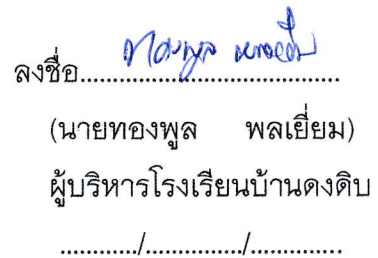 ลงชื่อ.......................................
(นายทองพูล พลเยี่ยม)
ผู้บริหารโรงเรียนบ้านดงดิบ
............/............../..............